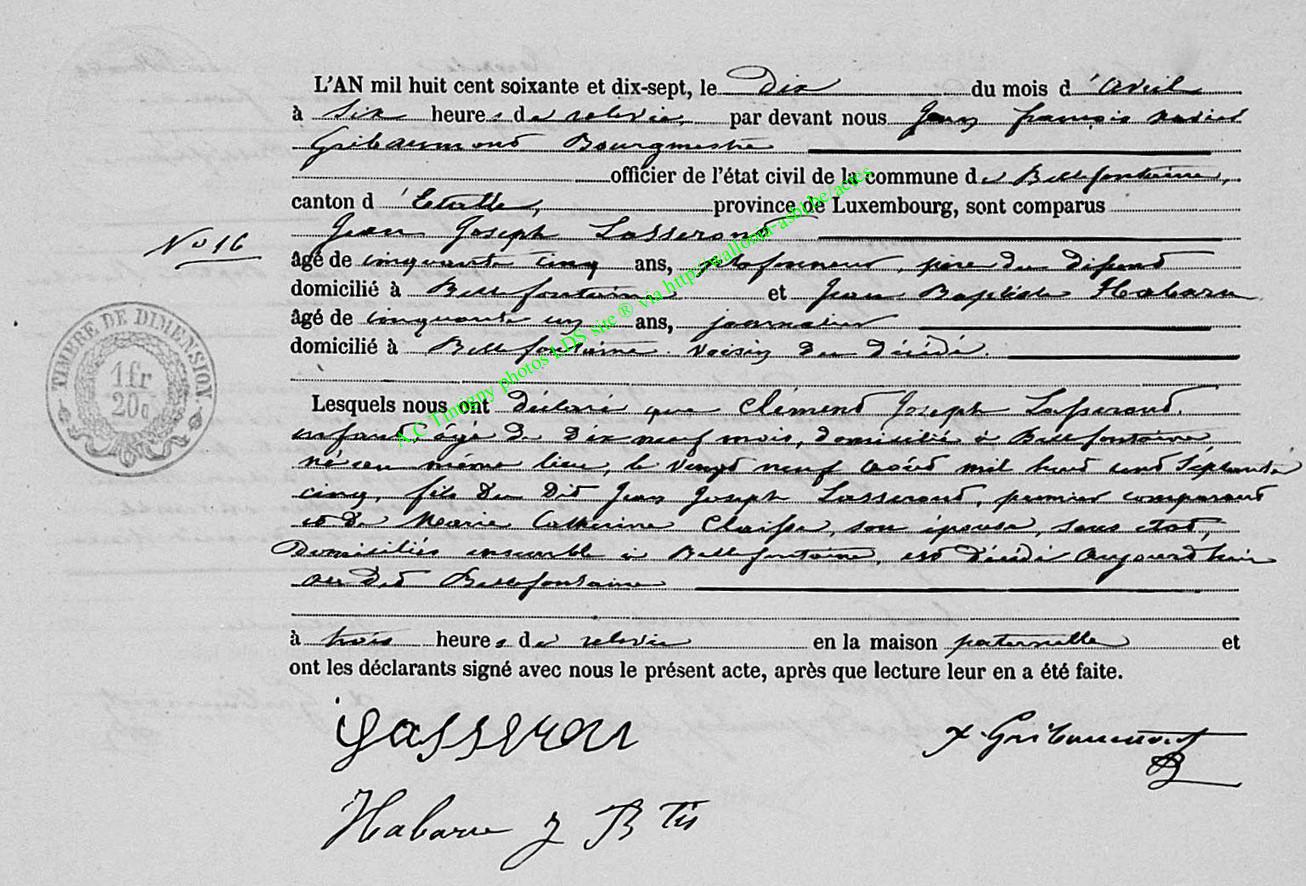 L'AN mil huit cent soixante et dix-sept, le dix du mois d'avril
à six heures de relevée, par devant nous Jean françois xavier
Gribaumont Bourgmestre
officier de l'état civil de la commune de Bellefontaine,
canton d'Etalle, province de Luxembourg, sont comparus
Jean Joseph Lasserand
No 16
âgé de cinquante cinq ans, plafonneur, père du défunt
domicilié à Bellefontaine et Jean Baptiste Habaru
âgé de cinquante un ans, journalier
domicilié à Bellefontaine. Voisin du décédé.
TIMBRE DE DIMENSION
1 fr
20c
Lesquels nous ont déclaré que Clément Joseph Lasserand,
enfant, âgé de dix neuf mois, domicilié à Bellefontaine,
né au même lieu, le vingt neuf août mil huit cent septante
cinq, fils du dit Jean Joseph Lasserand, premier comparant
et de Marie Catherine Claisse, son épouse, sans état,
domiciliés ensemble à Bellefontaine, est décédé aujourd'hui
au dit Bellefontaine
à trois heures de relevée en la maison paternelle et
ont les déclarants signé avec nous le présent acte, après que lecture leur en a été faite.
jj lasseran
x. Gribaumont
Habaru j Bte
A.C Tintigny photos LDS site ® via http://wallonia-asbl.be/actes